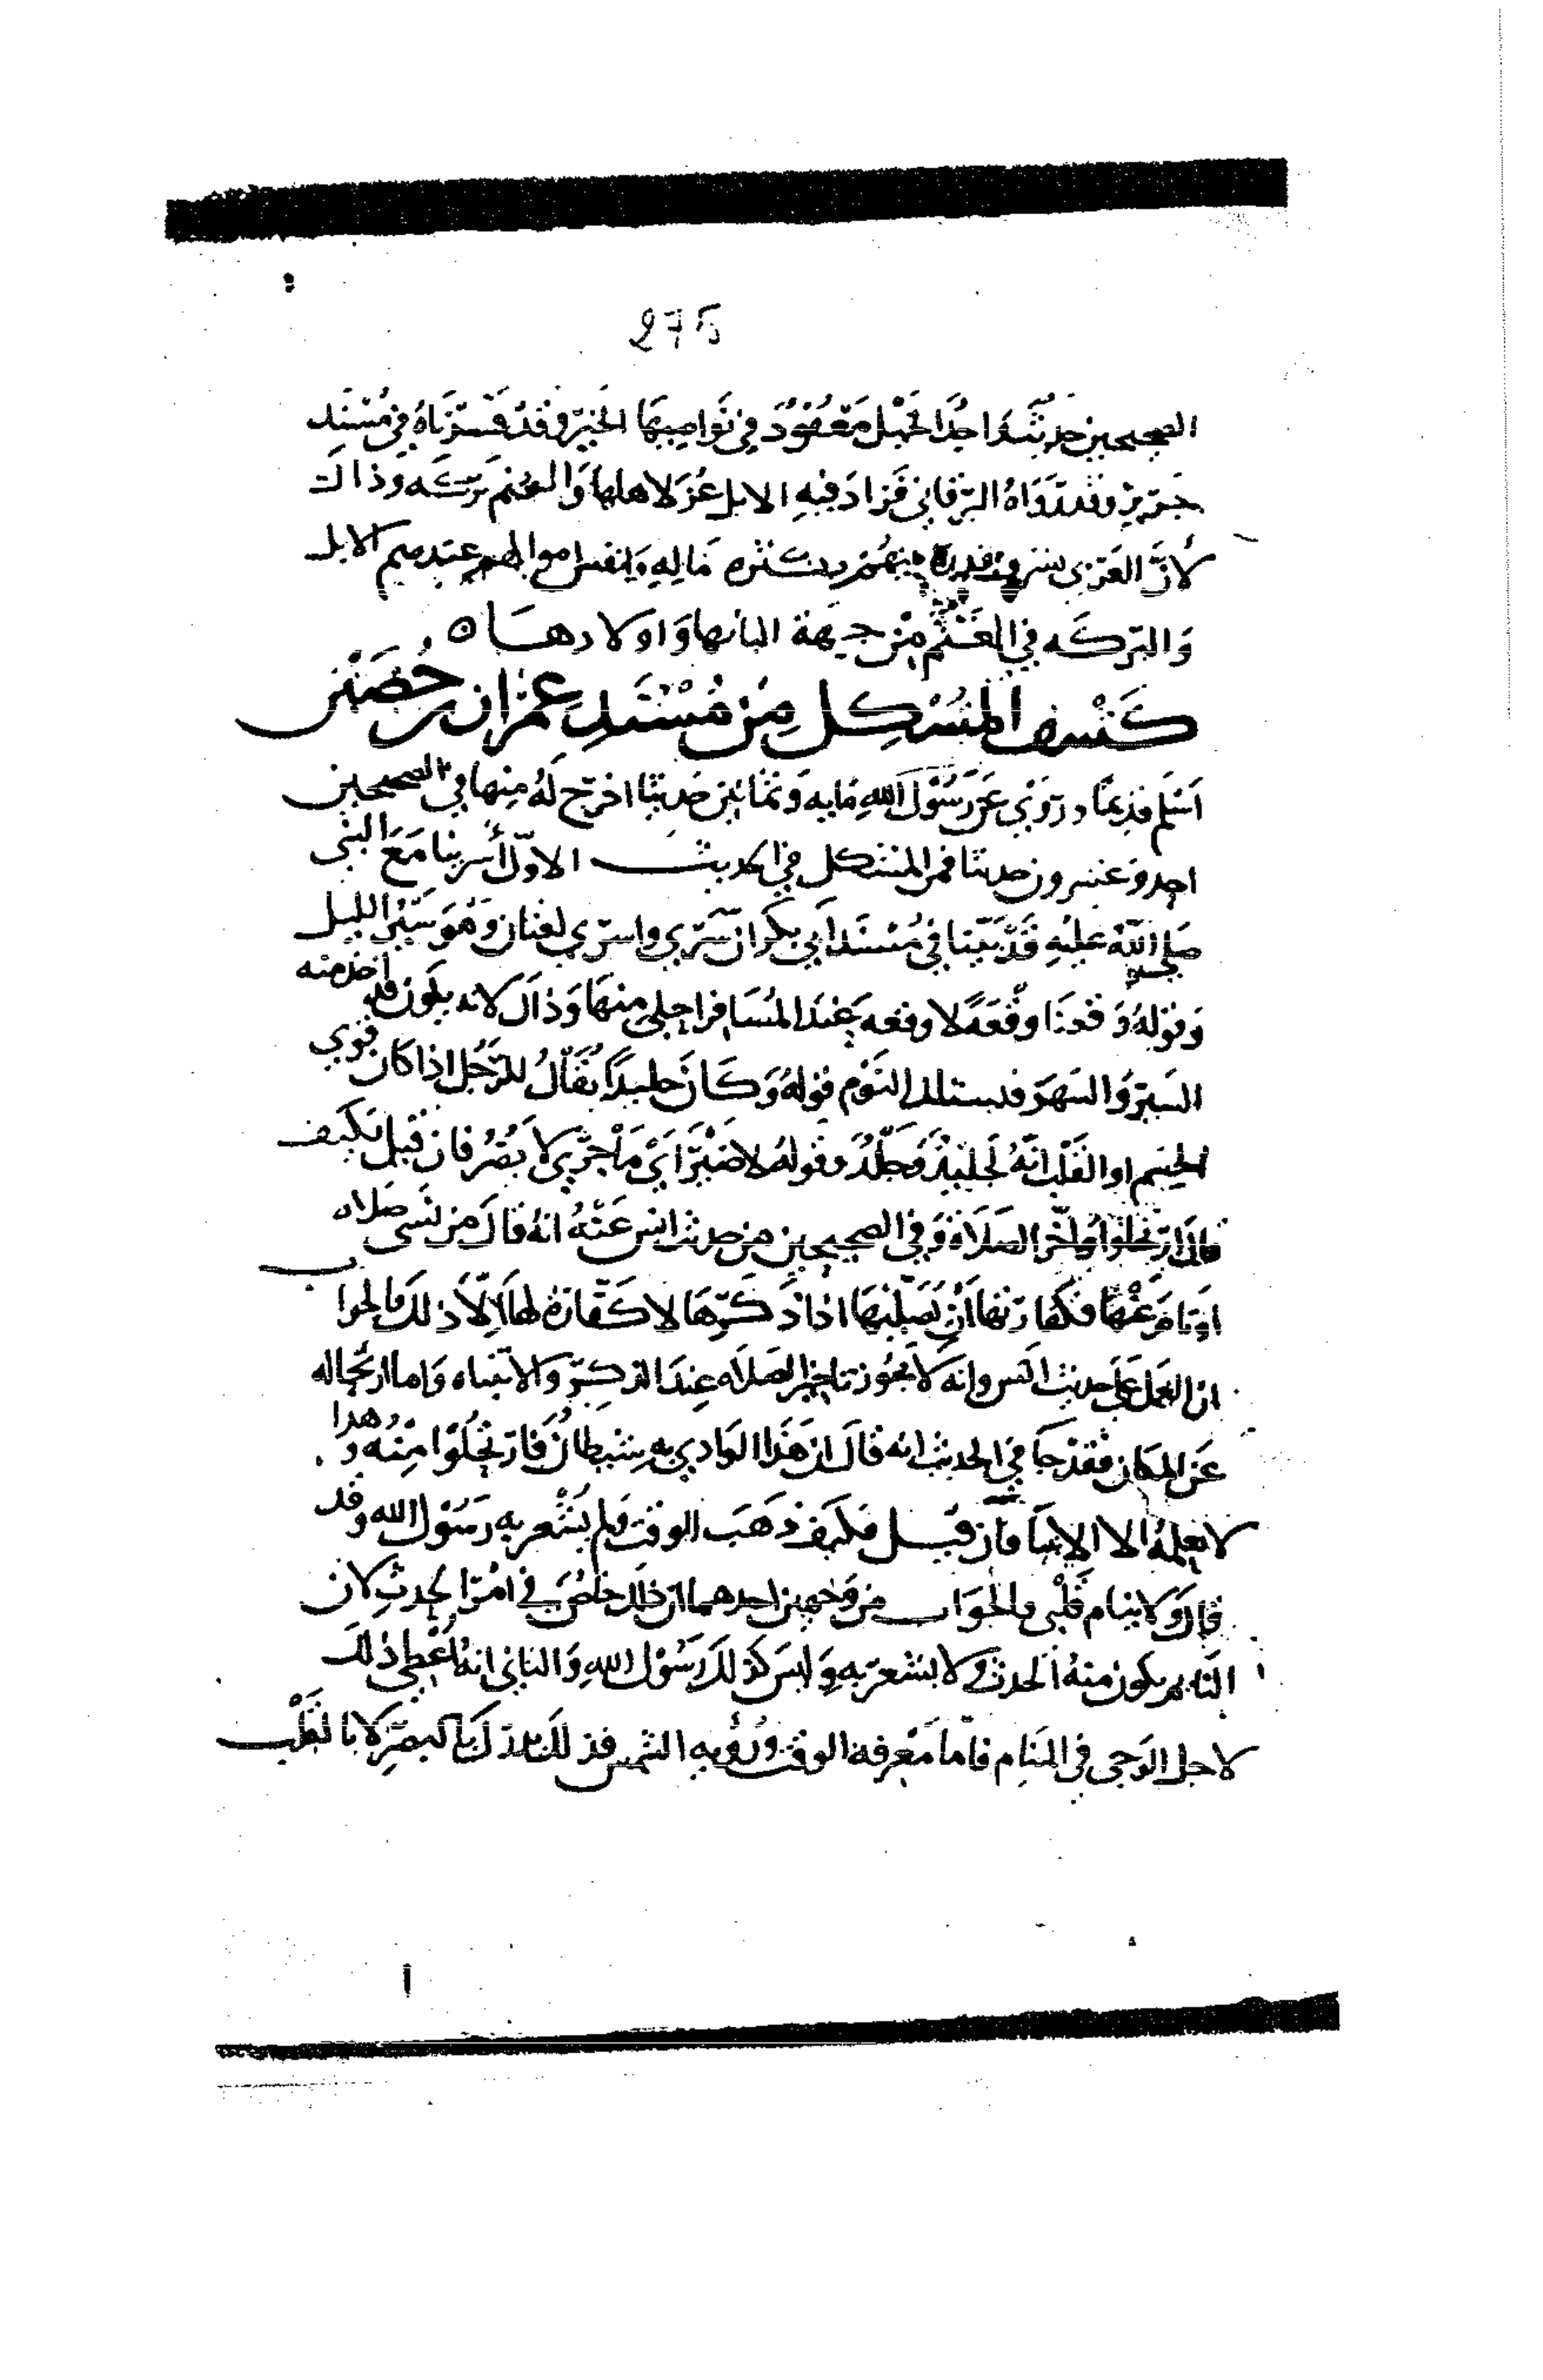 275
الصحيحين حديثا واحدا الخيل معقود في نواصيها الخير وقد فسرناه في مسند
جرير وقد رواه البرقاني فزاد فيه الابل عز لاهلها والغنم بركه وذاك
لان العزي بكثره ماله وانفس اموالهم عندهم الابل
والبركه في الغنم من جهة البانها واولادها ه
كشف المشكل من مسند عمران بن حصين
اسلم قديما وروي عن رسول الله مايه وثمانين حديثا اخرج له منها في الصحيحين
احد وعشرون حديثا فمن المشكل في الحديث الاول أسرينا مع النبي
صلى الله عليه قد بينا في مسند أبي بكر ان سري واسري لغتان وهو سير الليل
وقوله وقعنا وقعة لا وقعه عند المسافر احلى منها وذاك لانه يكون قد اخذ منه
السير والسهر فيستلذ النوم قوله وكان جليدا يقال للرجل اذا كان قوي
الجسم او القلب انه لجليد وجلد وقوله لا ضير اي ما جرى لا يضر فان قيل فكيف
قال ارتحلوا واخر الصلاة وفي الصحيحين من حديث انس عنه انه قال من نسي صلاه
او نام عنها فكفارتها أن يصليها اذا ذكرها لا كفارة لها الا ذلك فالجواب
ان العمل على حديث انس وانه لا يجوز تاخير الصلاه عند الذكر والانتباه واما ارتحاله
عن المكان فقد جا في الحديث انه قال ان هذا الوادي به شيطان فارتحلوا منه وهذا
لا يعلمه الا الانبيا فان قيل فكيف ذهب الوقت ولم يشعر به رسول الله وقد
قال ولا ينام قلبي فالجواب من وجهين احدهما ان ذلك خاص في امر الحدث لان
النايم يكون منه الحدث ولا يشعر به وليس كذلك رسول الله والثاني انه اعطي ذلك
لاجل الوحي في المنام فاما معرفة الوقت ورؤيه الشمس فذلك يدرك بالبصر لا بالقلب